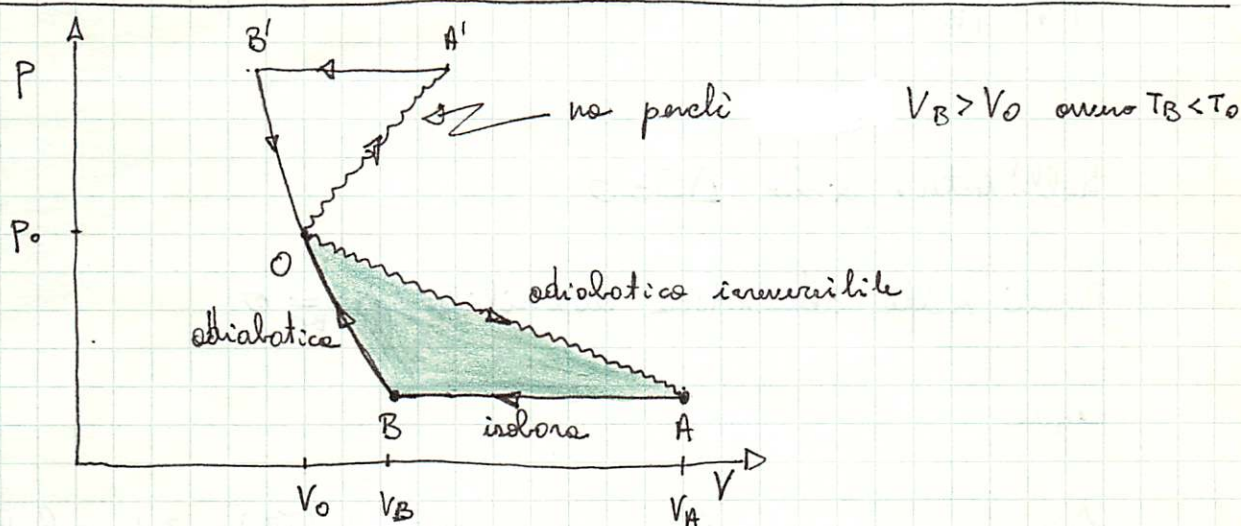 B' A'
P
no perchè V_B > V_O ovvero T_B < T_O
P_O
O
adiabatica irreversibile
adiabatica
B A
isobara
V_O V_B V_A V